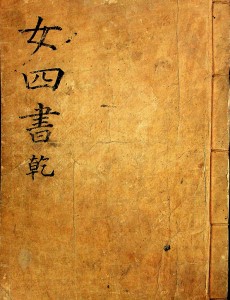 女四書 乾